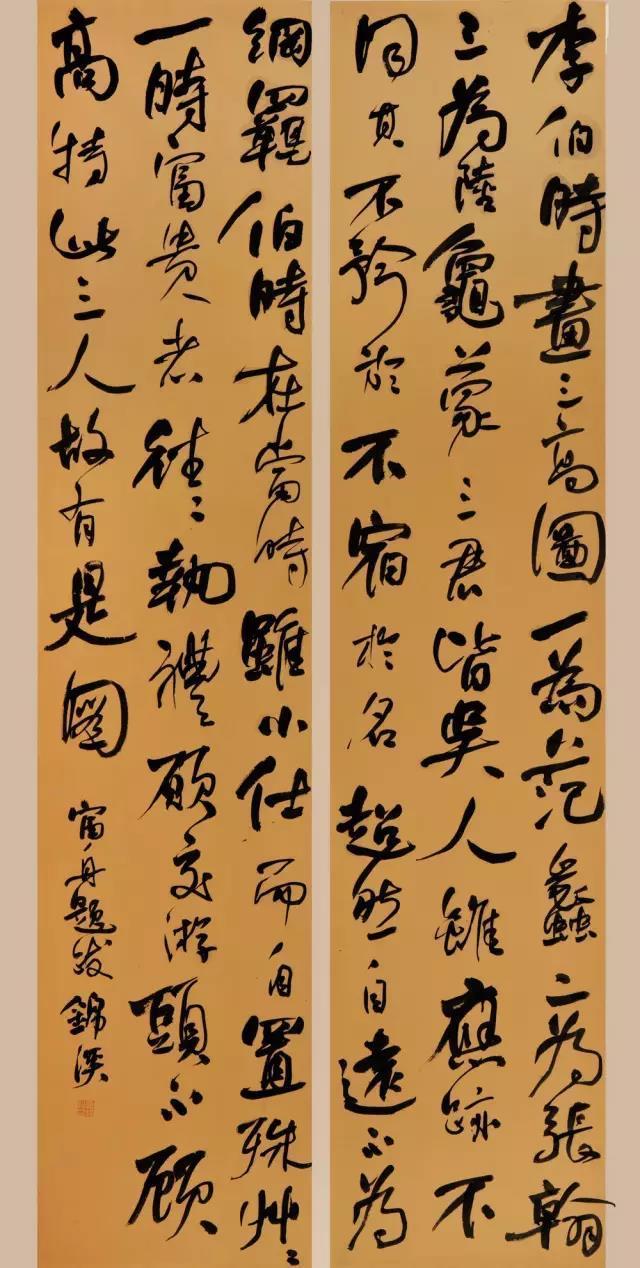 李伯時畫三高圖一為范蠡二為張翰
三為陸龜蒙三君皆吳人雖應跡不
同其不矜於不宿於名超然自遠不為
網羈伯時在當時雖小仕而自置殊艸〻
一時富貴者往〻執禮願交游頭不顧
高特此三人故有是圖
舟題跋 錦溪